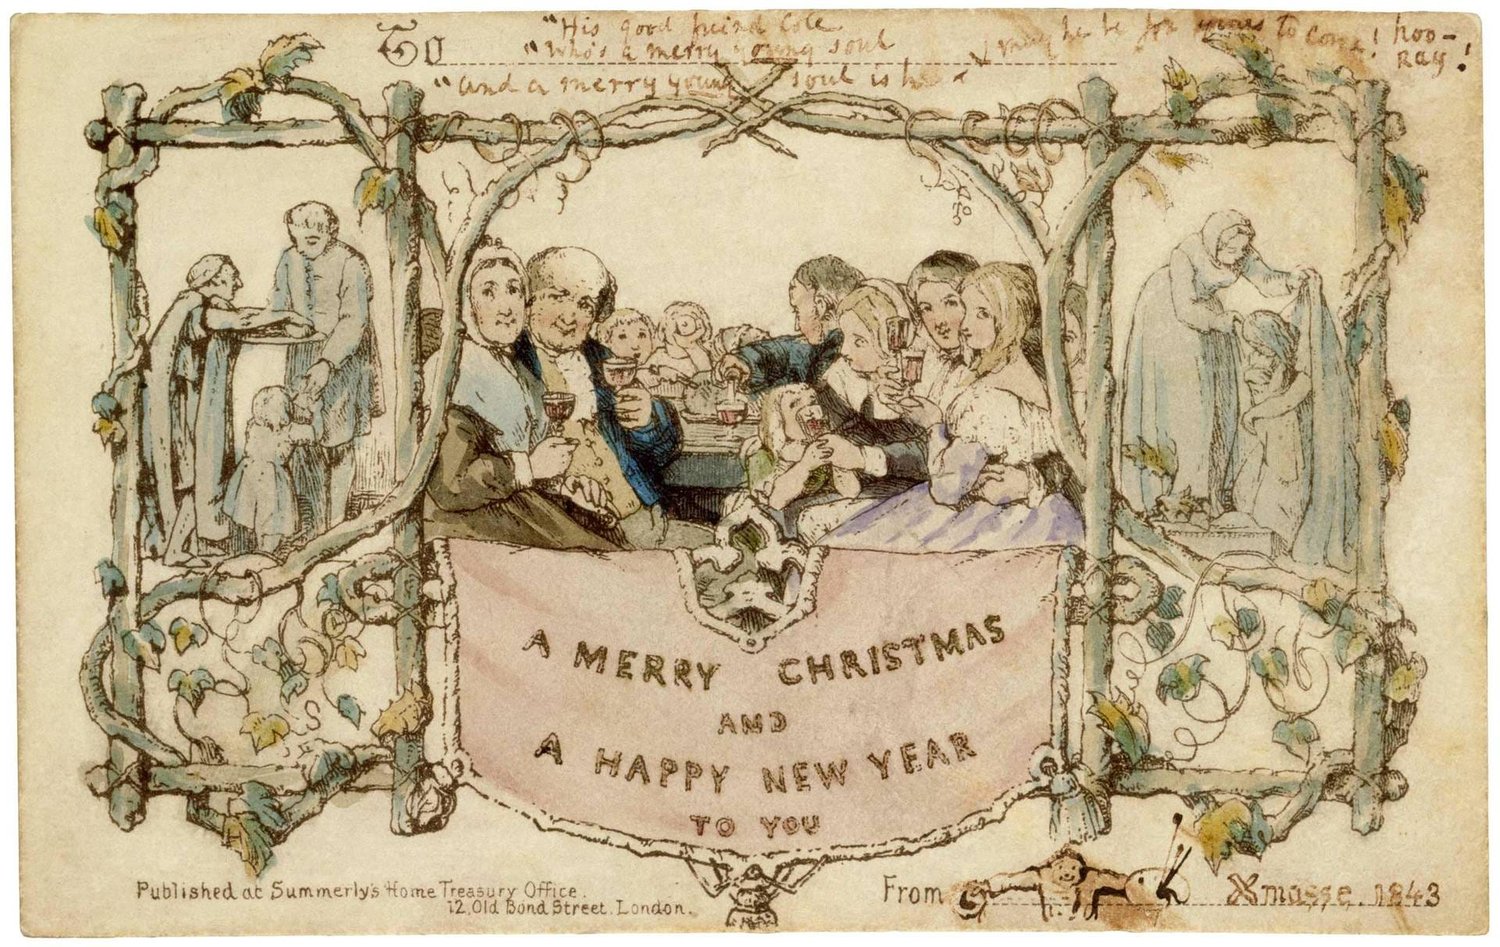 To
"His good friend Cole
"Who's a merry young soul
"and a merry young soul is he
may he be for years to come! hoo-
Ray!
A MERRY CHRISTMAS
AND
A HAPPY NEW YEAR
TO YOU
Published at Summerly's Home Treasury Office.
12, Old Bond Street. London.
From
Xmasse. 1843